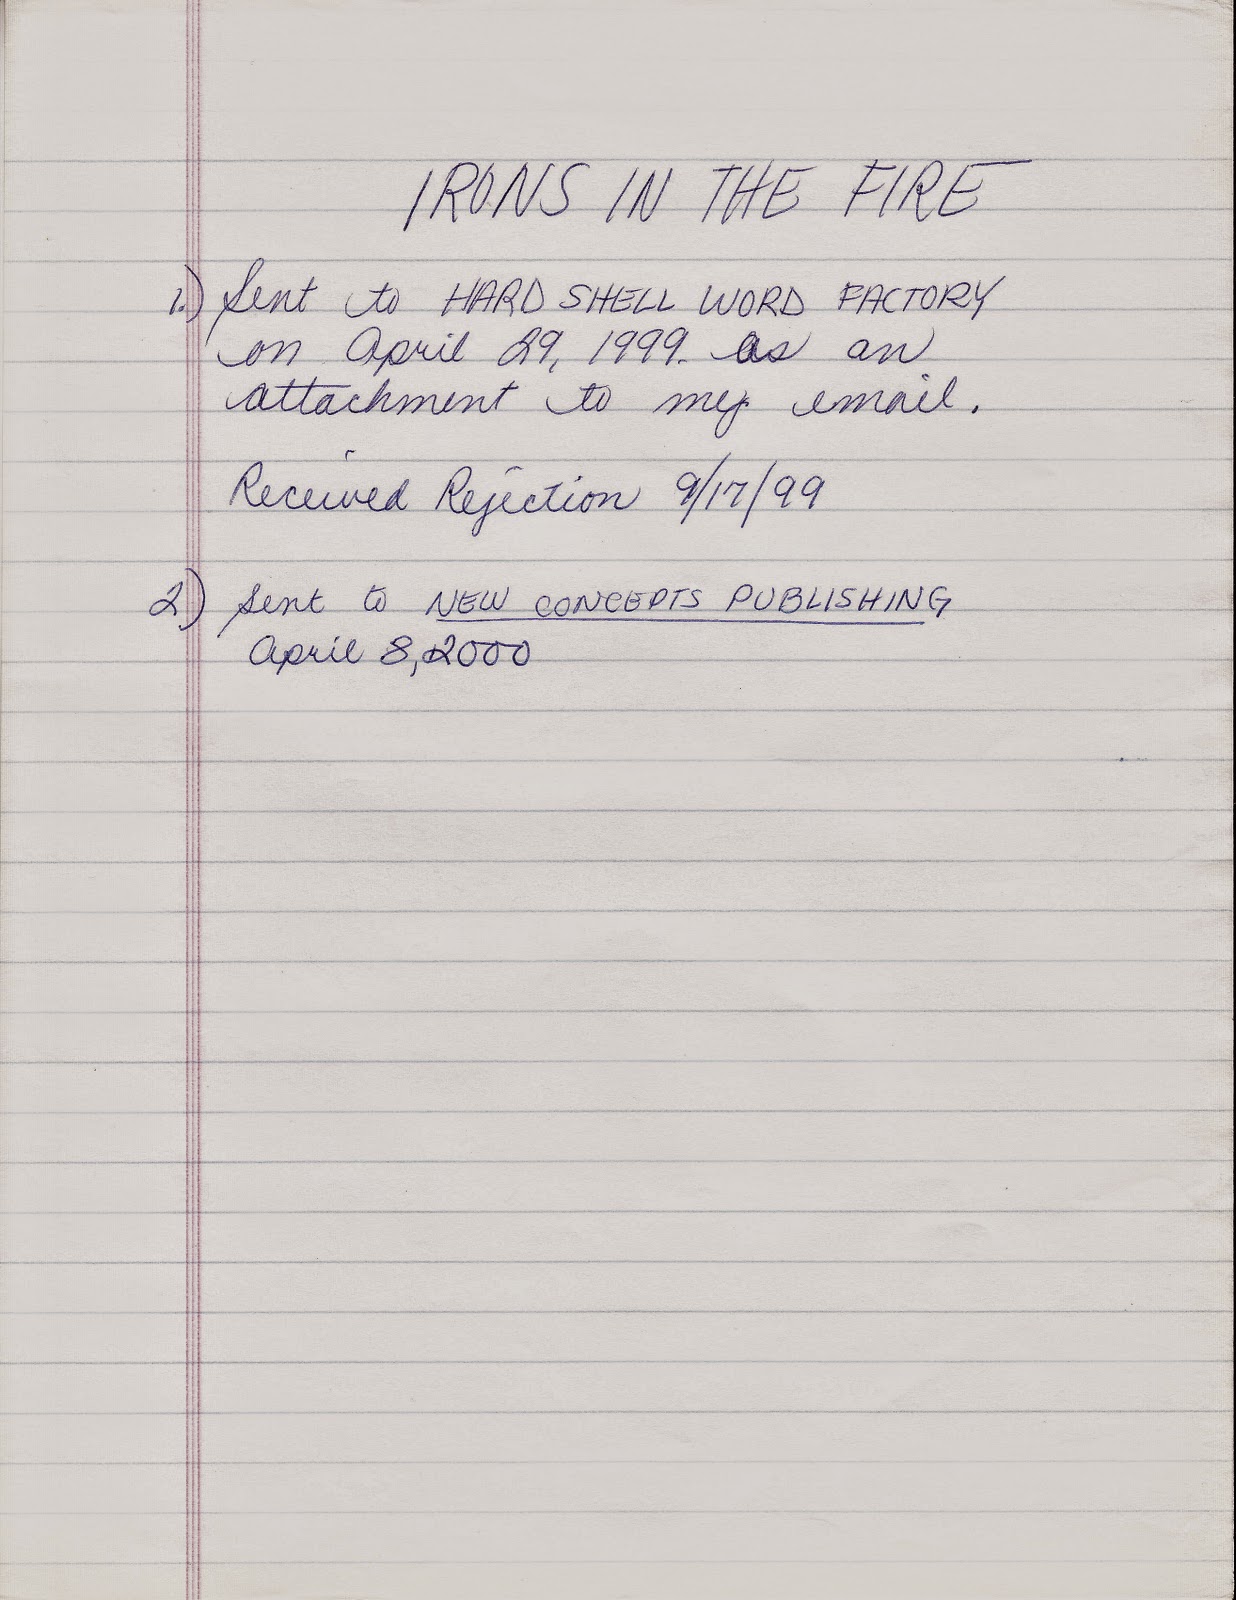 IRONS IN THE FIRE
1.) Sent to HARD SHELL WORD FACTORY
on April 29, 1999. as an
attachment to my email.
Received Rejection 9/17/99
2.) Sent to NEW CONCEPTS PUBLISHING
April 8, 2000